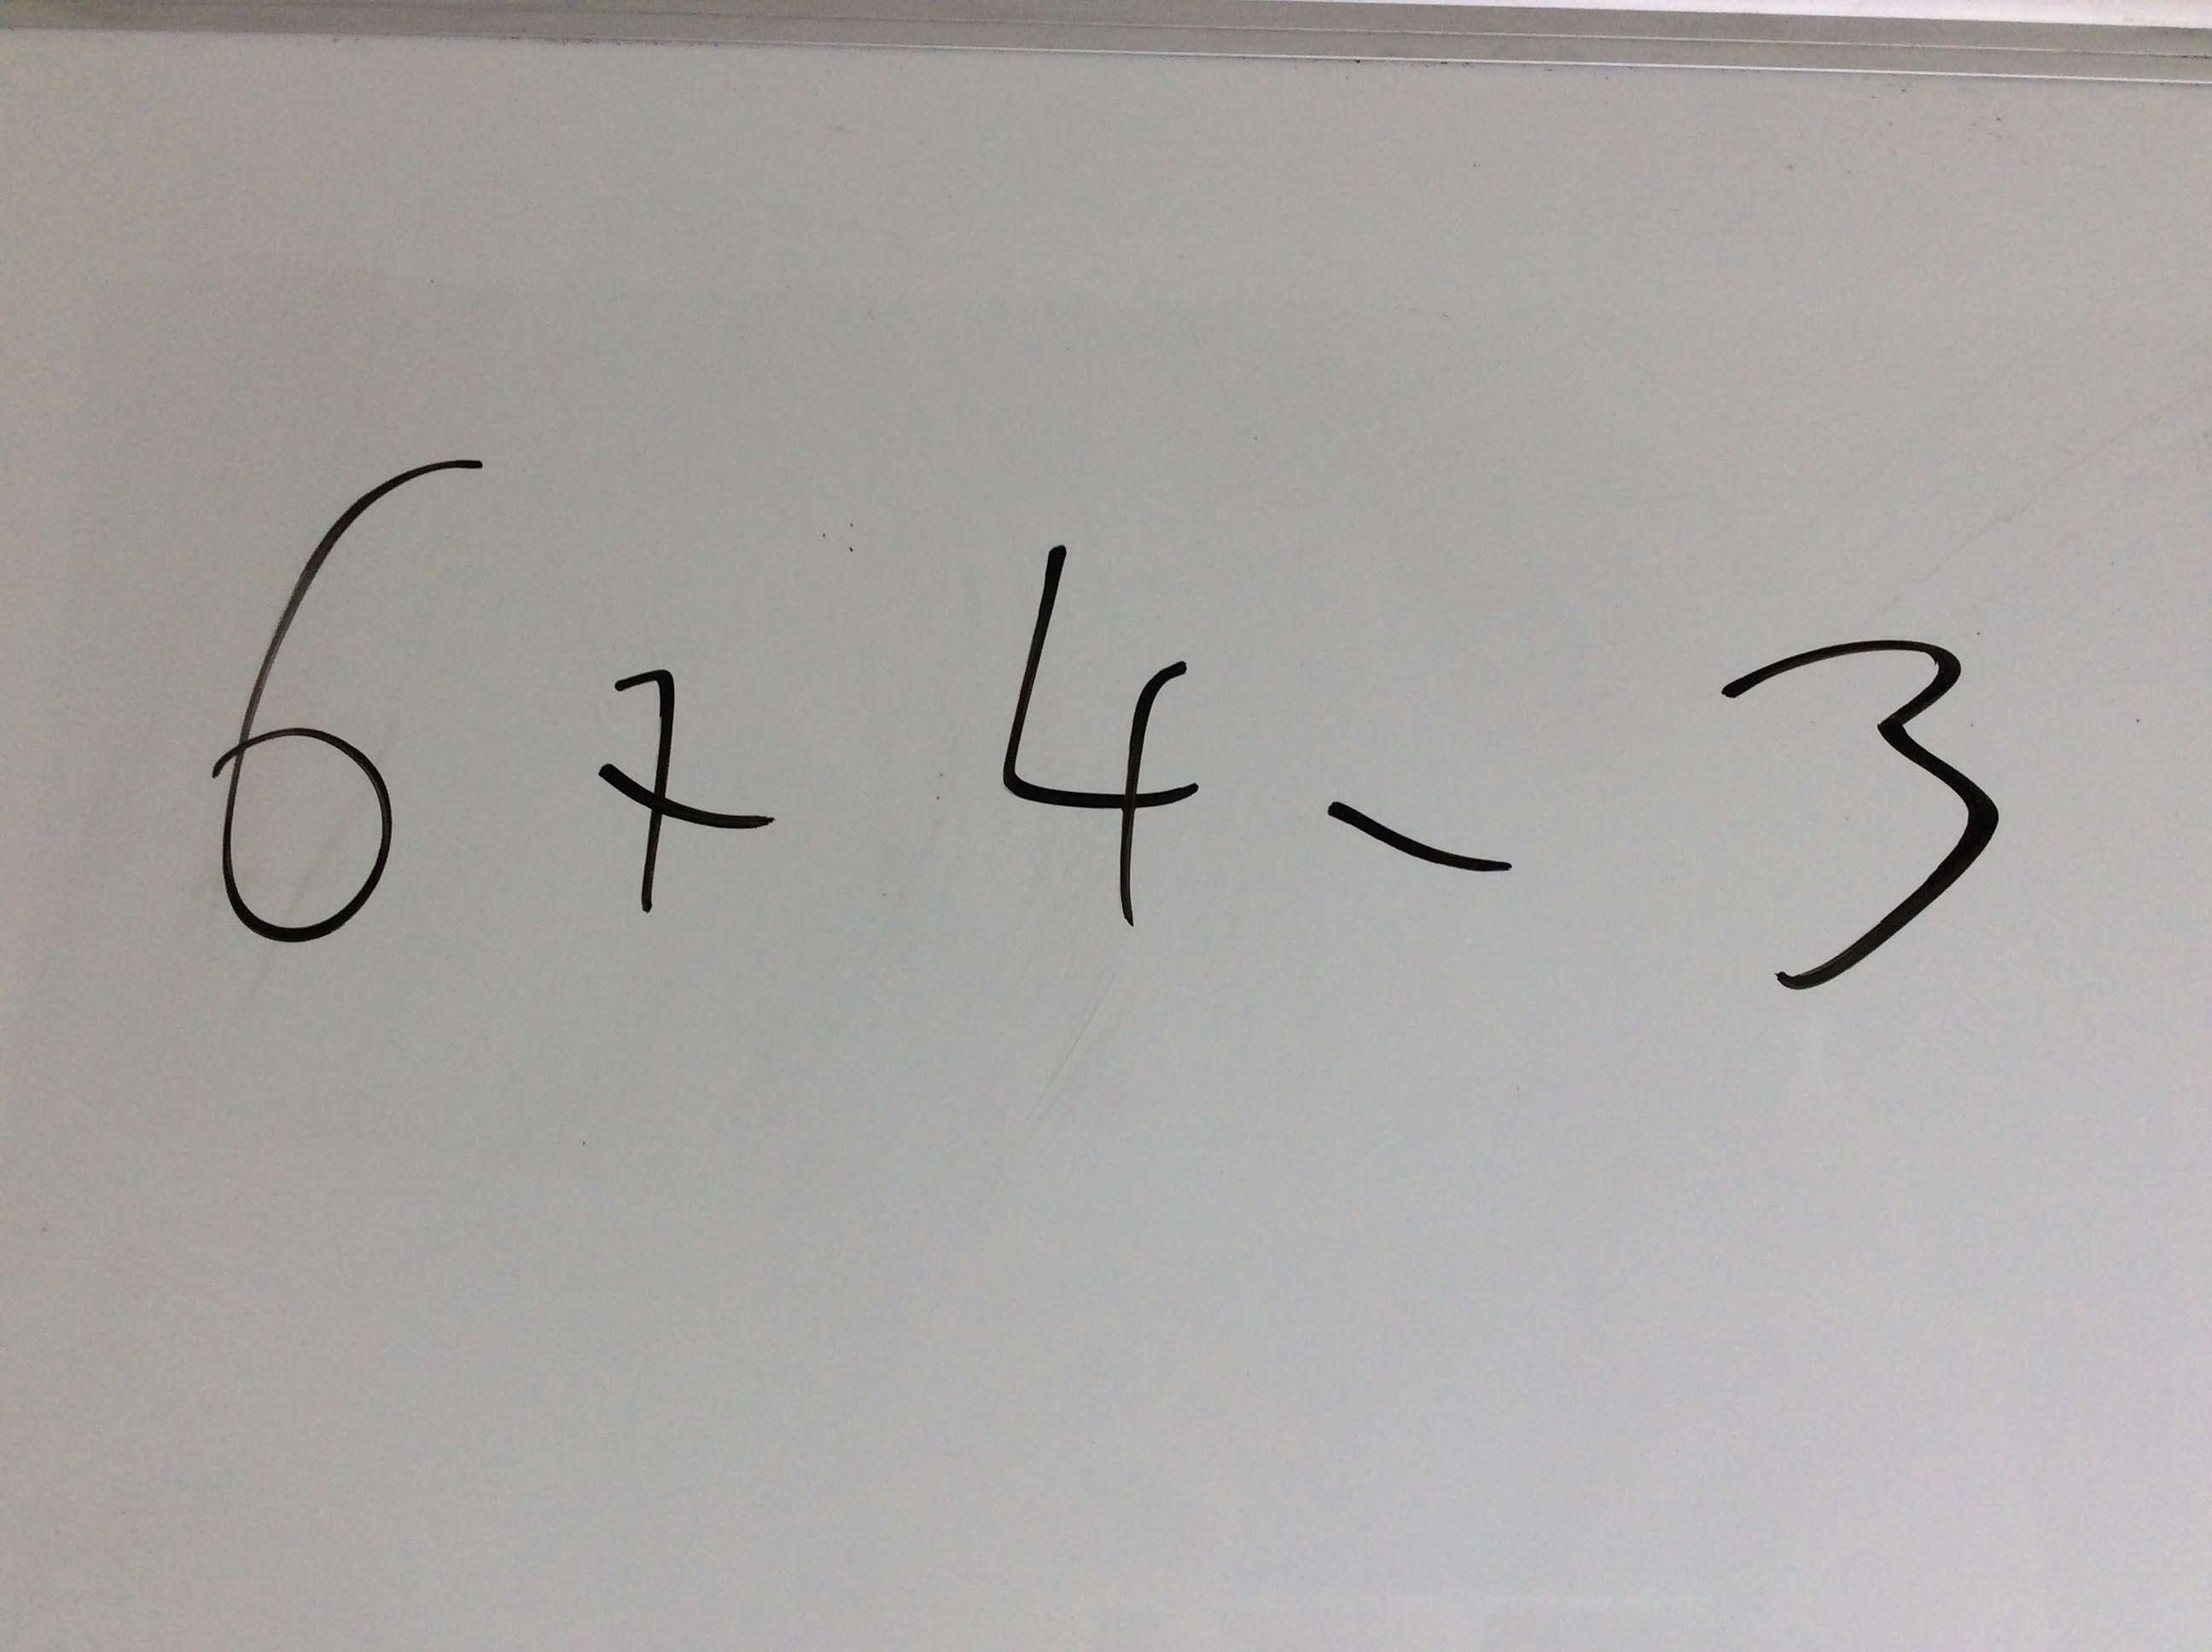 6 + 4 - 3